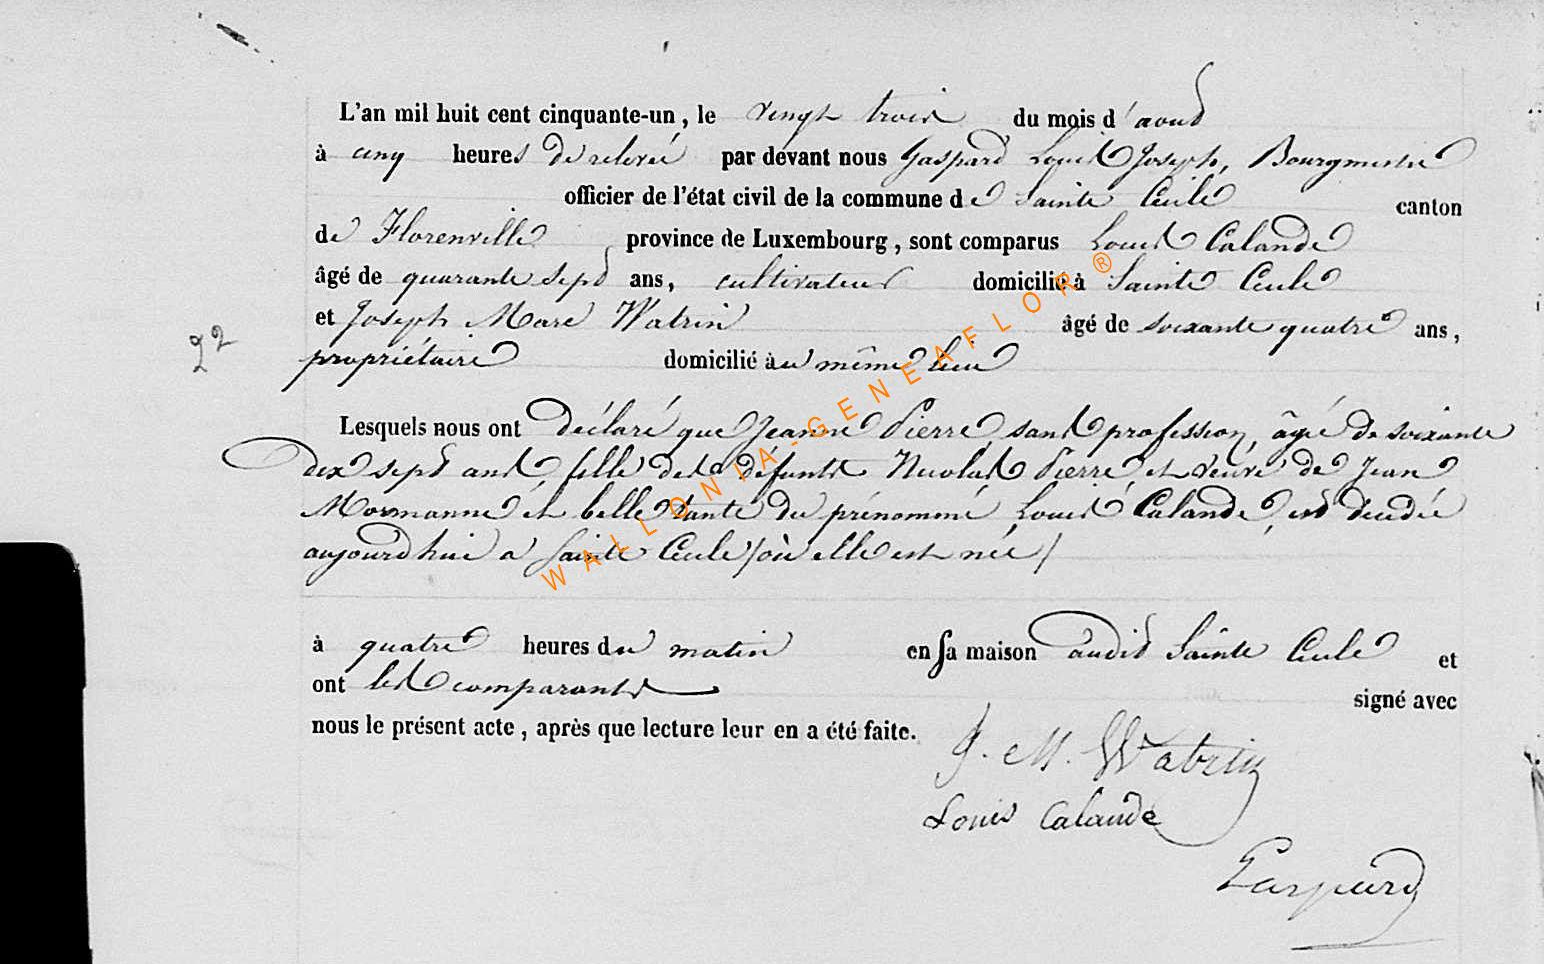 L'an mil huit cent cinquante-un, le vingt trois du mois d'aout
à cinq heures de relevée par devant nous Gaspard Louis Joseph, Bourgmestre
officier de l'état civil de la commune de Sainte Cécile canton
de Florenville province de Luxembourg, sont comparus Louis Calande
âgé de quarante sept ans, cultivateur domicilié à Sainte Cécile
et Joseph Marc Watrin âgé de soixante quatre ans,
22
propriétaire domicilié à au même lieu
Lesquels nous ont déclaré que Jeanne Pierre, sans profession, âgé de soixante
dix sept ans, fille des défunts Nicolas Pierre, et veuve de Jean
Mormanne et belle tante du prénommé Louis Calande, est décédée
aujourd'hui a Sainte Cécile (où elle est née)
à quatre heures du matin en sa maison audit Sainte Cécile et
ont les comparants signé avec
nous le présent acte, après que lecture leur en a été faite.
J. M. Watrin
Louis Calande
Gaspard
WALLONIA-GENEAFLOR ®